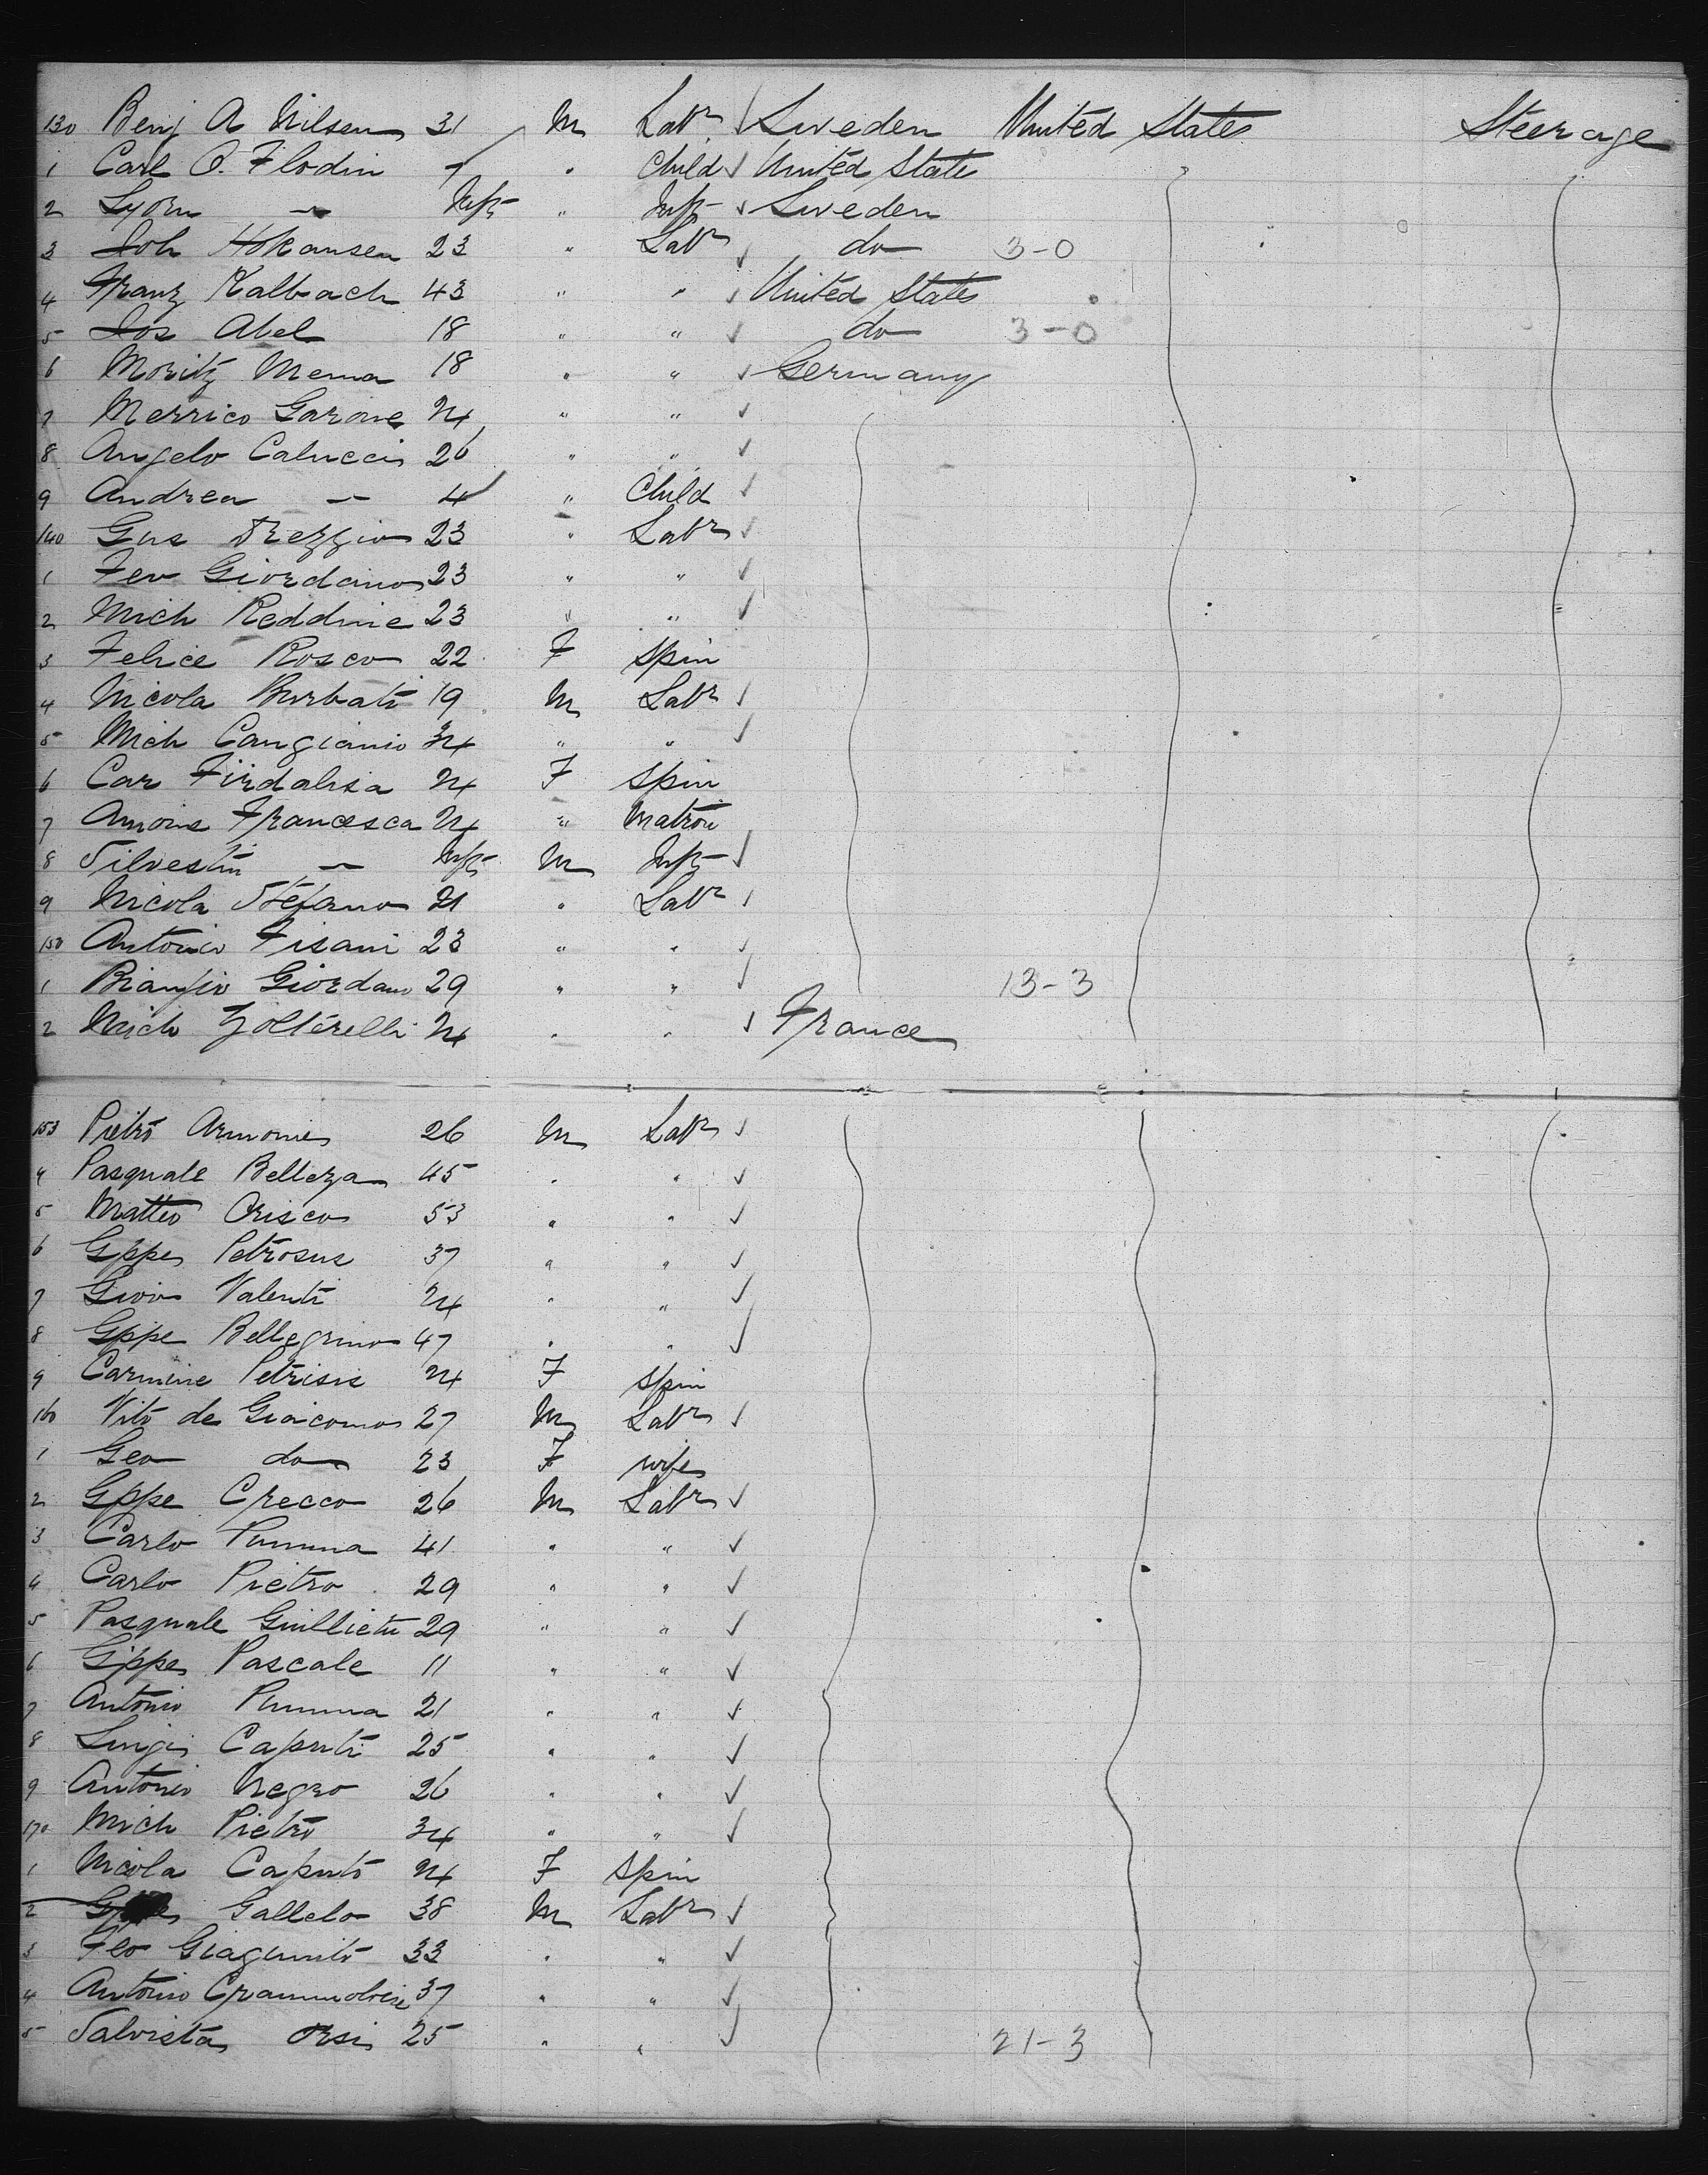 130 Benj A Nilsen 31 M Labr Sweden United States Steerage
1 Carl O. Flodin 7 " Child United State
2 — Inft " Inft Sweden
3 Joh Hokansen 23 " Labr do 3-0
4 Franz Kalbach 43 " " United States
5 Jos Abel 18 " " do 3-0
6 Moritz Mema 18 " " Germany
7 Merrico Garone 24 " "
8 Angelo Calucci 26 " "
9 Andrea — 4 " Child
140 Gus Trezzio 23 " Labr
1 Fev Giordano 23 " "
2 Mich Reddine 23 " "
3 Felice Rosco 22 F Spin
4 Nicola Burbati 19 M Labr
5 Mich Cangianio 34 " "
6 Car Firdalisa 24 F Spin
7 Amoine Francesca 24 " Matron
8 Silvestin — Inft M Inft
9 Nicola Stefano 21 " Labr
150 Antonio Fisani 23 " "
1 Biangio Giordano 29 " " 13-3
2 Mich Zolterelli 24 " " France
153 Pietro Armone 26 M Labr
4 Pasquale Belleza 45 " "
5 Matteo Orisco 53 " "
6 Gppe Petrosus 37 " "
7 Giov Valenti 24 " "
8 Gppe Bellegrino 47 " "
9 Carmine Petrisis 24 F Spin
160 Vito de Giacomo 27 M Labr
1 Geo do 23 F wife
2 Gppe Crecco 26 M Labr
3 Carlo Pumma 41 " "
4 Carlo Pietro 29 " "
5 Pasquale Guillietti 29 " "
6 Gppe Pascale 11 " "
7 Antonio Pumma 21 " "
8 Luigi Caputi 25 " "
9 Antonio Negro 26 " "
170 Mich Pietro 34 " "
1 Nicola Caputo 24 F Spin
2 Gallelo 38 M Labr
3 Flo Giagunito 33 " "
4 Antonio 37 " "
5 Salvista Orsi 25 " " 21-3